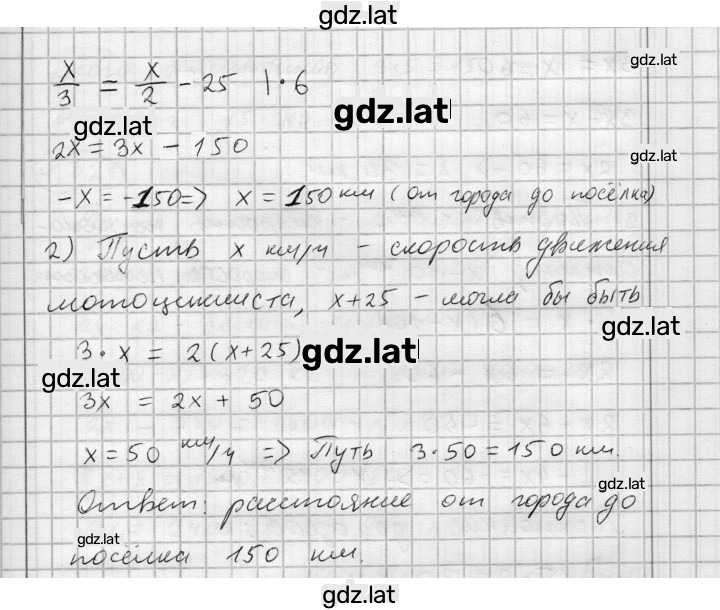 gdz.lat
x/3 = x/2 - 25 | · 6
gdz.lat
gdz.lat
gdz.lat
2x = 3x - 150
gdz.lat
-x = -150 => x = 150 км (от города до посёлка)
2) Пусть x км/ч - скорость движения
мотоциклиста, x+25 - могла бы быть
gdz.lat
3 · x = 2(x+25)
gdz.lat
gdz.lat
3x = 2x + 50
x = 50 км/ч => Путь 3·50 = 150 км.
gdz.lat
Ответ: расстояние от города до
gdz.lat
посёлка 150 км.
gdz.lat